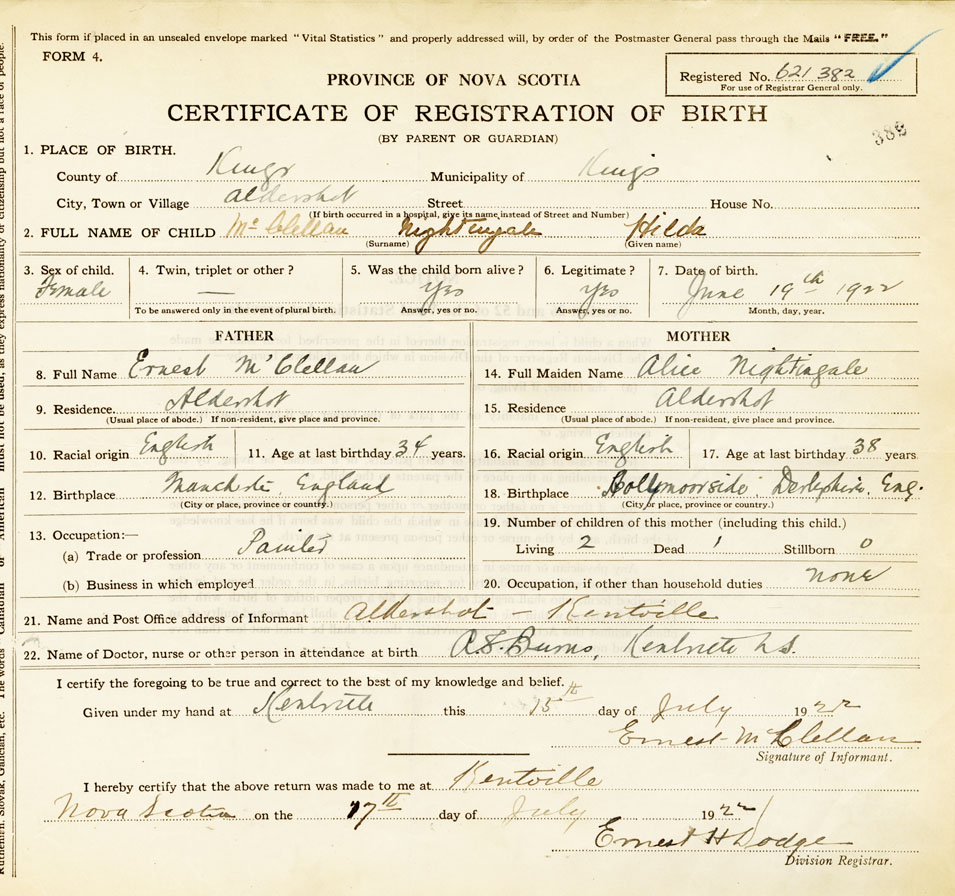 This form if placed in an unsealed envelope marked "Vital Statistics" and properly addressed will, by order of the Postmaster General pass through the Mails "FREE."
FORM 4.
Registered No. 621382
For use of Registrar General only.
PROVINCE OF NOVA SCOTIA
CERTIFICATE OF REGISTRATION OF BIRTH
(BY PARENT OR GUARDIAN)
385
1. PLACE OF BIRTH.
County of Kings Municipality of Kings
City, Town or Village Aldershot Street House No.
(If birth occurred in a hospital, give its name instead of Street and Number)
2. FULL NAME OF CHILD McClellan Nightingale Hilda
(Surname) (Given name)
3. Sex of child. 4. Twin, triplet or other? 5. Was the child born alive? 6. Legitimate? 7. Date of birth.
Female — Yes Yes June 19th 1922
To be answered only in the event of plural birth. Answer, yes or no. Answer, yes or no. Month, day, year.
FATHER MOTHER
8. Full Name Ernest McClellan 14. Full Maiden Name Alice Nightingale
9. Residence. Aldershot 15. Residence Aldershot
(Usual place of abode.) If non-resident, give place and province. (Usual place of abode.) If non-resident, give place and province.
10. Racial origin English 11. Age at last birthday 34 years. 16. Racial origin English 17. Age at last birthday 38 years
12. Birthplace England 18. Birthplace Hollymoorside, Derbyshire, Eng.
(City or place, province or country.) (City or place, province or country.)
13. Occupation:— 19. Number of children of this mother (including this child.)
(a) Trade or profession Painter Living 2 Dead 1 Stillborn 0
(b) Business in which employed 20. Occupation, if other than household duties none
21. Name and Post Office address of Informant Aldershot – Kentville
22. Name of Doctor, nurse or other person in attendance at birth Burns, Kentville N.S.
I certify the foregoing to be true and correct to the best of my knowledge and belief.
Given under my hand at Kentville this 15th day of July 1922
Ernest McClellan
Signature of Informant.
I hereby certify that the above return was made to me at Kentville
Nova Scotia on the 17th day of July 1922
Ernest H Dodge
Division Registrar.